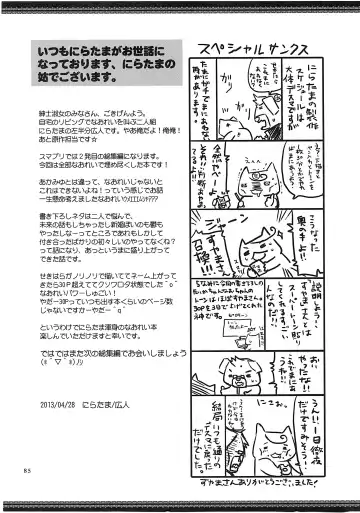 いつもにらたまがお世話に
なっております、にらたまの
姑でございます。
紳士淑女のみなさん、ごきげんよう。
自宅のリビングでなおれいを叫ぶ二人組
にらたまの左半分広人です。やあ俺だよ！俺俺！
あと原作担当です☆
スマプリでは２発目の総集編になります。
今回は全編なおれいで埋め尽くした本です！
あかみゆとは違って、なおれいじゃないと
これはできないよね！っていう感じでお話
書き下ろしネタは二人で悩んで、
未来の話もしちゃったし新婚ほいのも艶も
やったしなーってところであれもしかして
付き合ったばかりの初々しいのやってなくね？
って話になり、あっというまに盛り上がって
できた話です。
せきはらがノリノリで描いててネーム上がって
きたら30P超えててクソワロタ状態でした
なおれいパワーしゅごい！
やだー30Pっていつも出す本くらいのページ数
じゃないですかーやだー
というわけでにらたま渾身のなおれい本
楽しんでいただけますと幸いです。
ではではまた次の総集編でお会いしましょう
2013/04/28　にらたま/広人
スペシャルサンクス
にらたまの製作
スケジュールは
大体デスマですが
こうなったら
奥の手よ！！
すやまさん
召喚！！
説明しよう！
すやまさんとは
うん！！１日徹夜
だけですみそう！
結局いつも通りの
デスマに戻った
だけでした。
すやまさんありがとうございました！
85